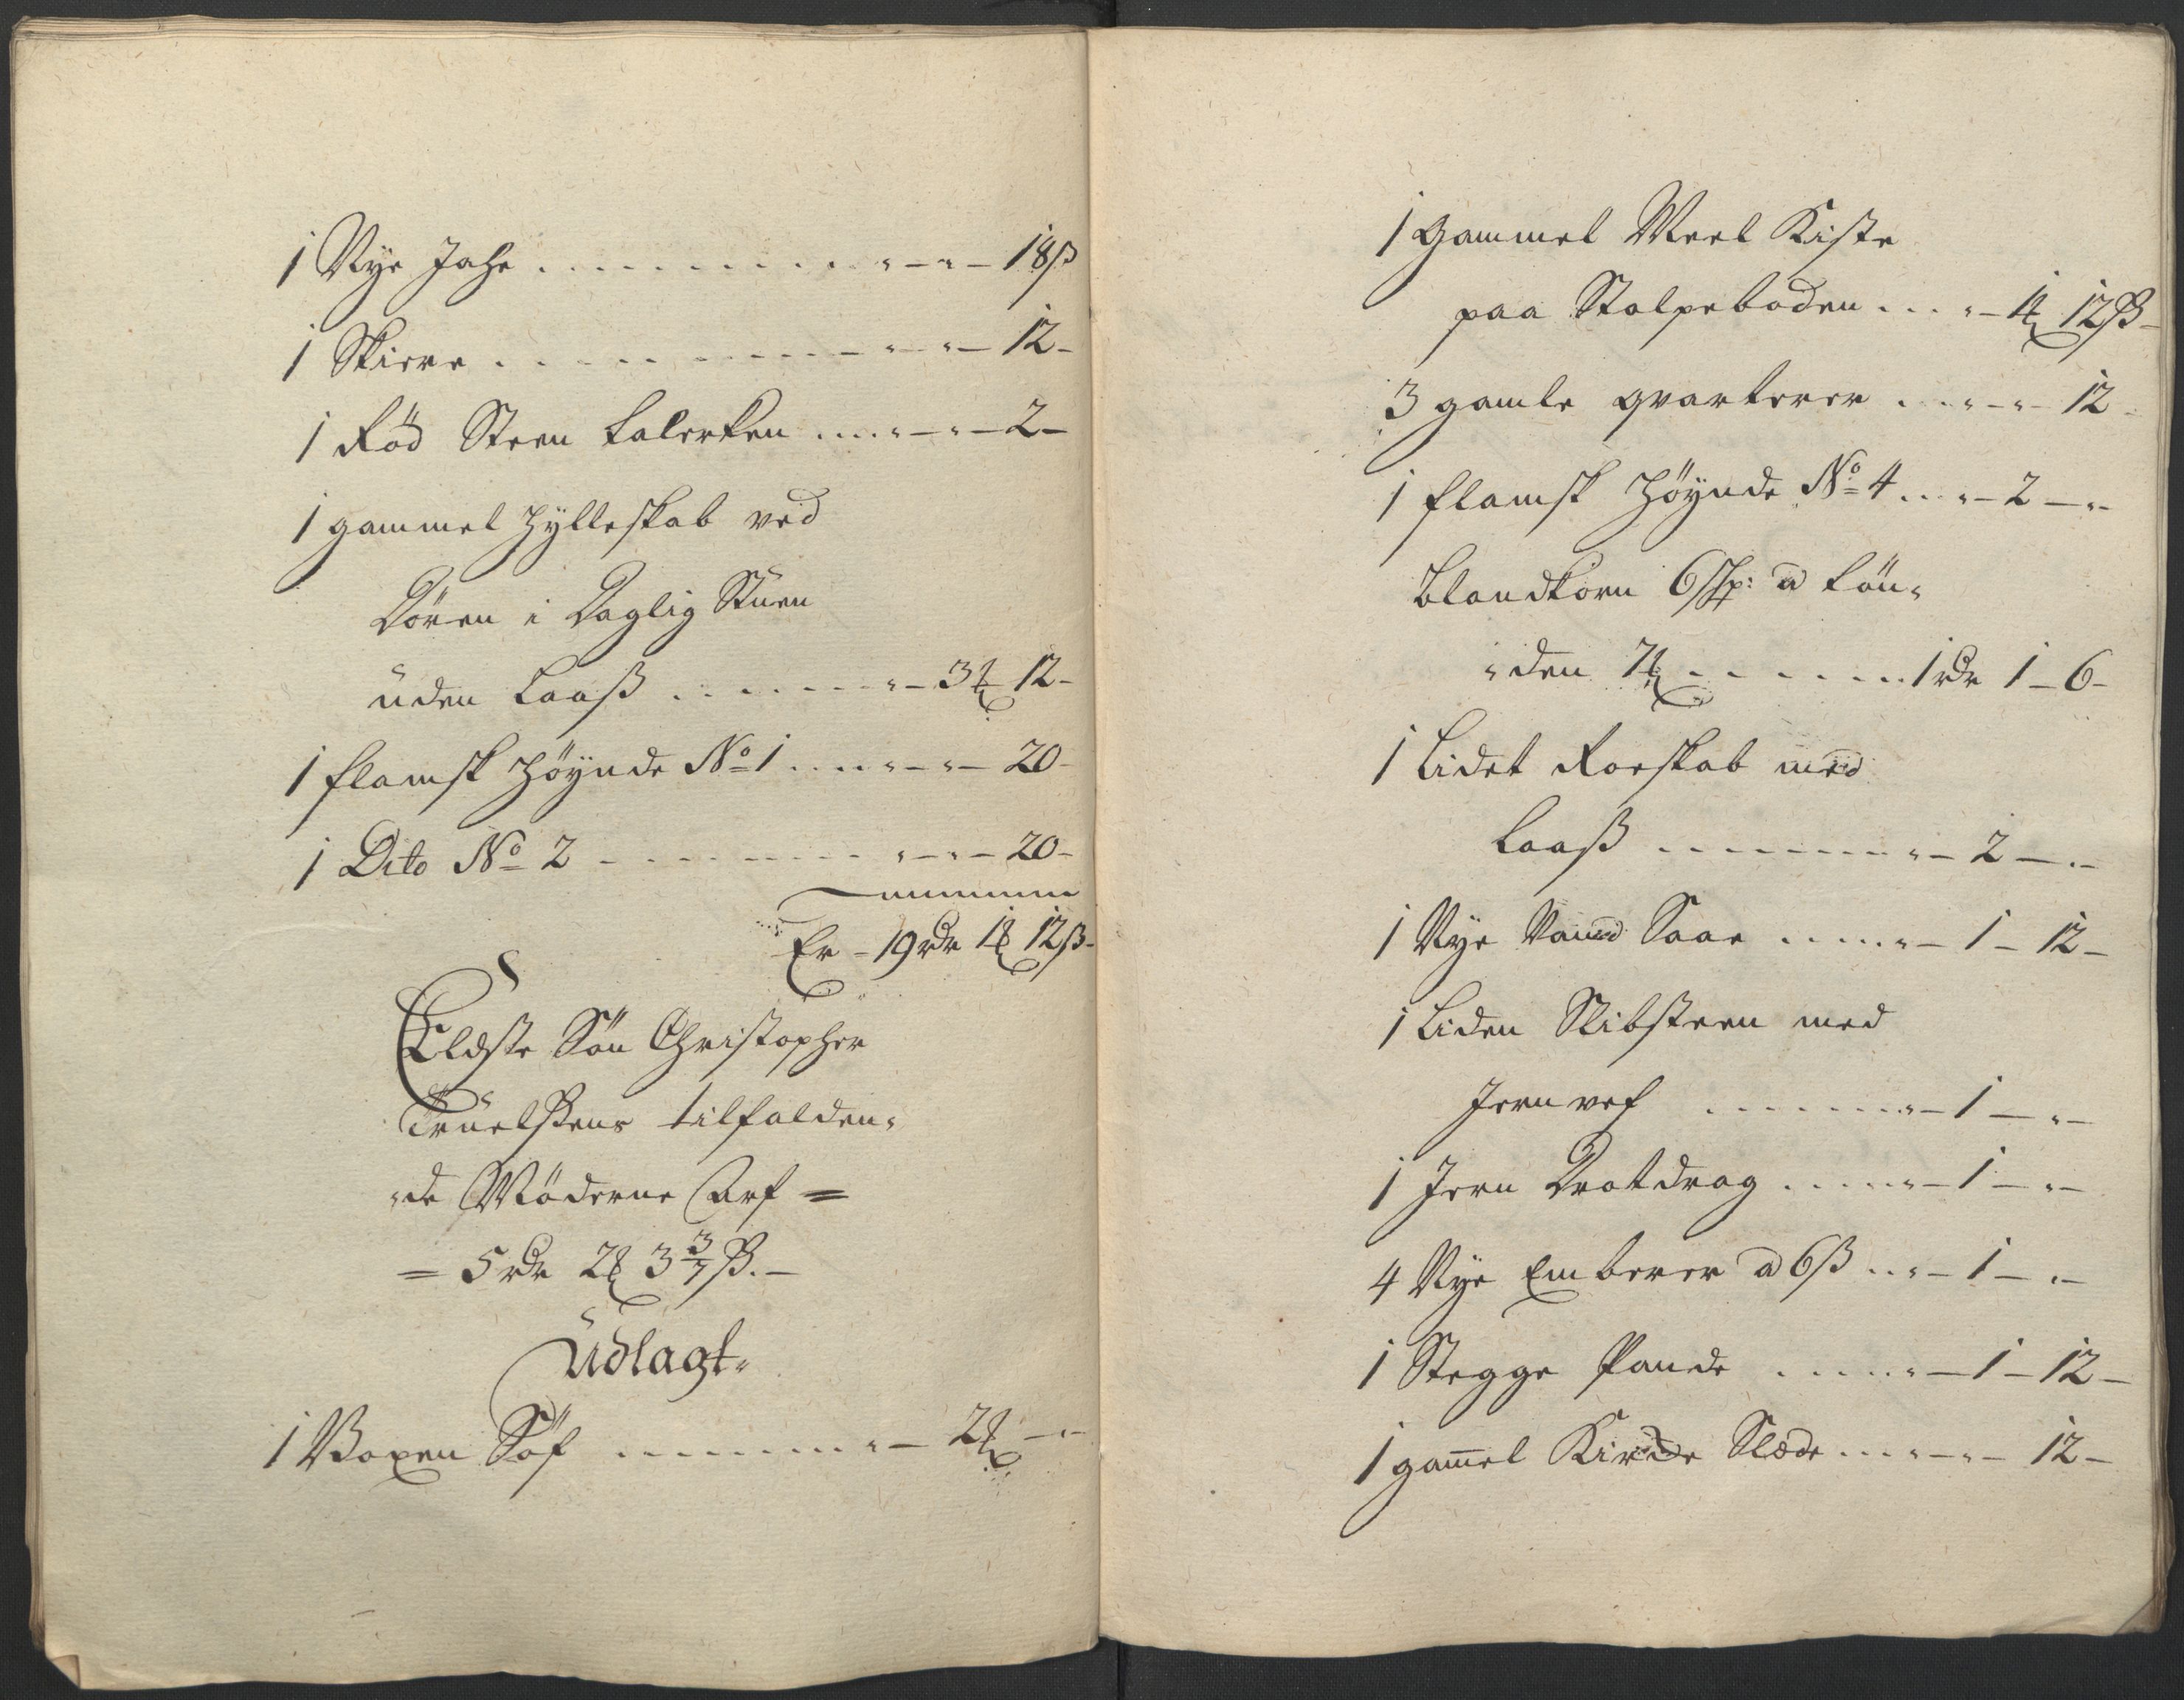 1 Nye Jahe . . . . . . . . . . . „ – „ – 18ß
1 Skiere . . . . . . . . . . . – „ – „ – 12 –
1 Rød Steen talerken . . . . „ – „ – 2 –
1 gammel Hylleskab ved
Dören i Daglig Stuen
uden Laaß . . . . . . . „ – 3 ₰ 12 –
1 flamsk Höynde No 1 . . . . „ – „ – 20 –
1 Dito No 2 – . . . . . . . . „ – „ – 20 –
Er – 19 rdr 1 ₰ 12 ß –
Eldste Sön Christopher
Truelsens tilfalden„
„de Möderne Arf =
= 5 rdr 2 ₰ 3 3/7 ß. –
Udlagt„
1 Voxen Söf . . . . . . . . . „ – 2 ₰ – „ –
1 Gammel Meel Kiste
paa Stolpeboden . . . „ – 1 ₰ 12 ß –
3 gamle qvarterer . . . „ – „ – 12 –
1 flamsk Höynde No 4 . . . „ – 2 – „ –
Blandkorn 6 Sp: a tön„
„den 7 ₰ . . . . . . . . 1 rdr 1 – 6 –
1 Lidet Roeskab med
Laaß . . . . . . . . . „ – 2 – „ –
1 Nye Vand Saae . . . . . „ – 1 – 12 –
1 Liden Slibsteen med
Jern vef . . . . . . . . „ – 1 – „ –
1 Jern Drotdrag . . . . . „ – 1 – „ –
4 Nye Emberer a 6 ß . . „ – 1 – „ –
1 Stegge Pande . . . . . „ – 1 – 12 –
1 gam̅el Kirde Slæde . . . „ – „ – 12 –